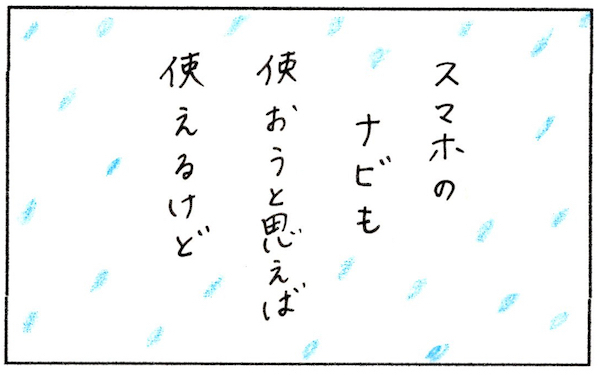 スマホの
ナビも
使おうと思えば
使えるけど